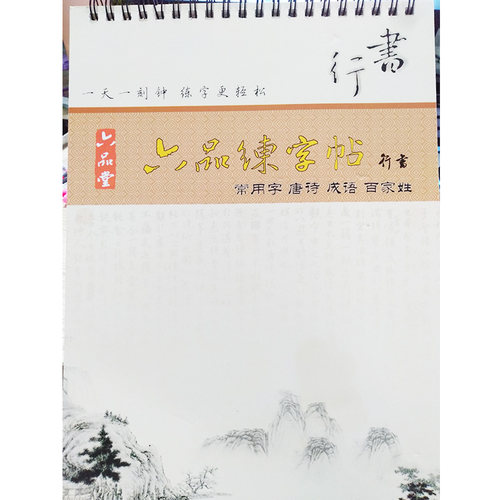 行書
一天一刻钟 练字更轻松
六品堂
六品練字帖 行書
常用字 唐诗 成语 百家姓